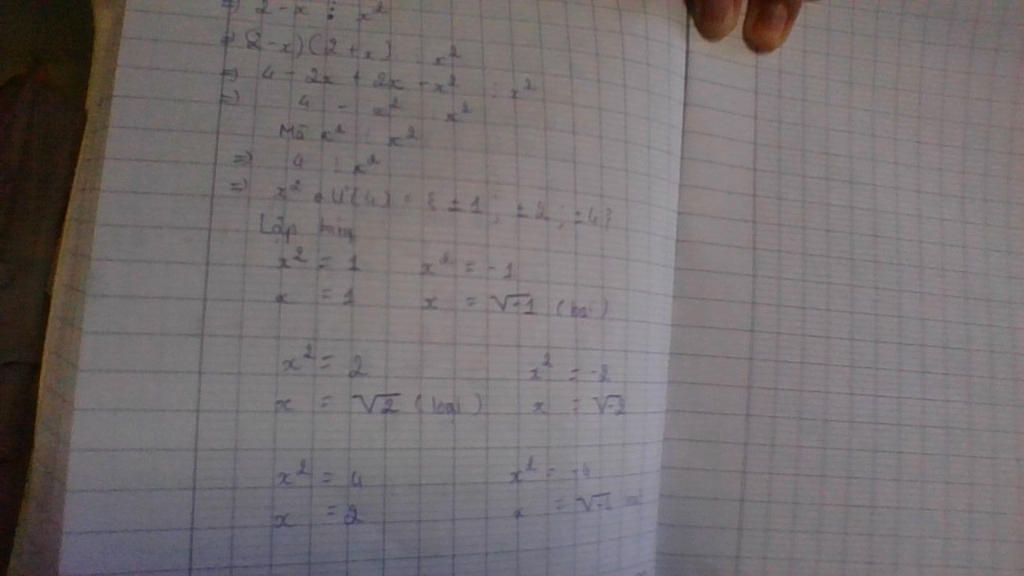 =) 2 - x ⋮ x²
=) (2 - x)(2 + x) ⋮ x²
=) 4 - 2x + 2x - x² ⋮ x²
=) 4 - x² ⋮ x²
Mà x² ⋮ x²
=) 4 ⋮ x²
=) x² ∈ Ư(4) = {±1; ±2; ±4}
Lập
x² = 1 x² = -1
x = 1 x = √-1 (loại)
x² = 2 x² = -2
x = √2 (loại) x = √-2
x² = 4 x² = -4
x = 2 x =